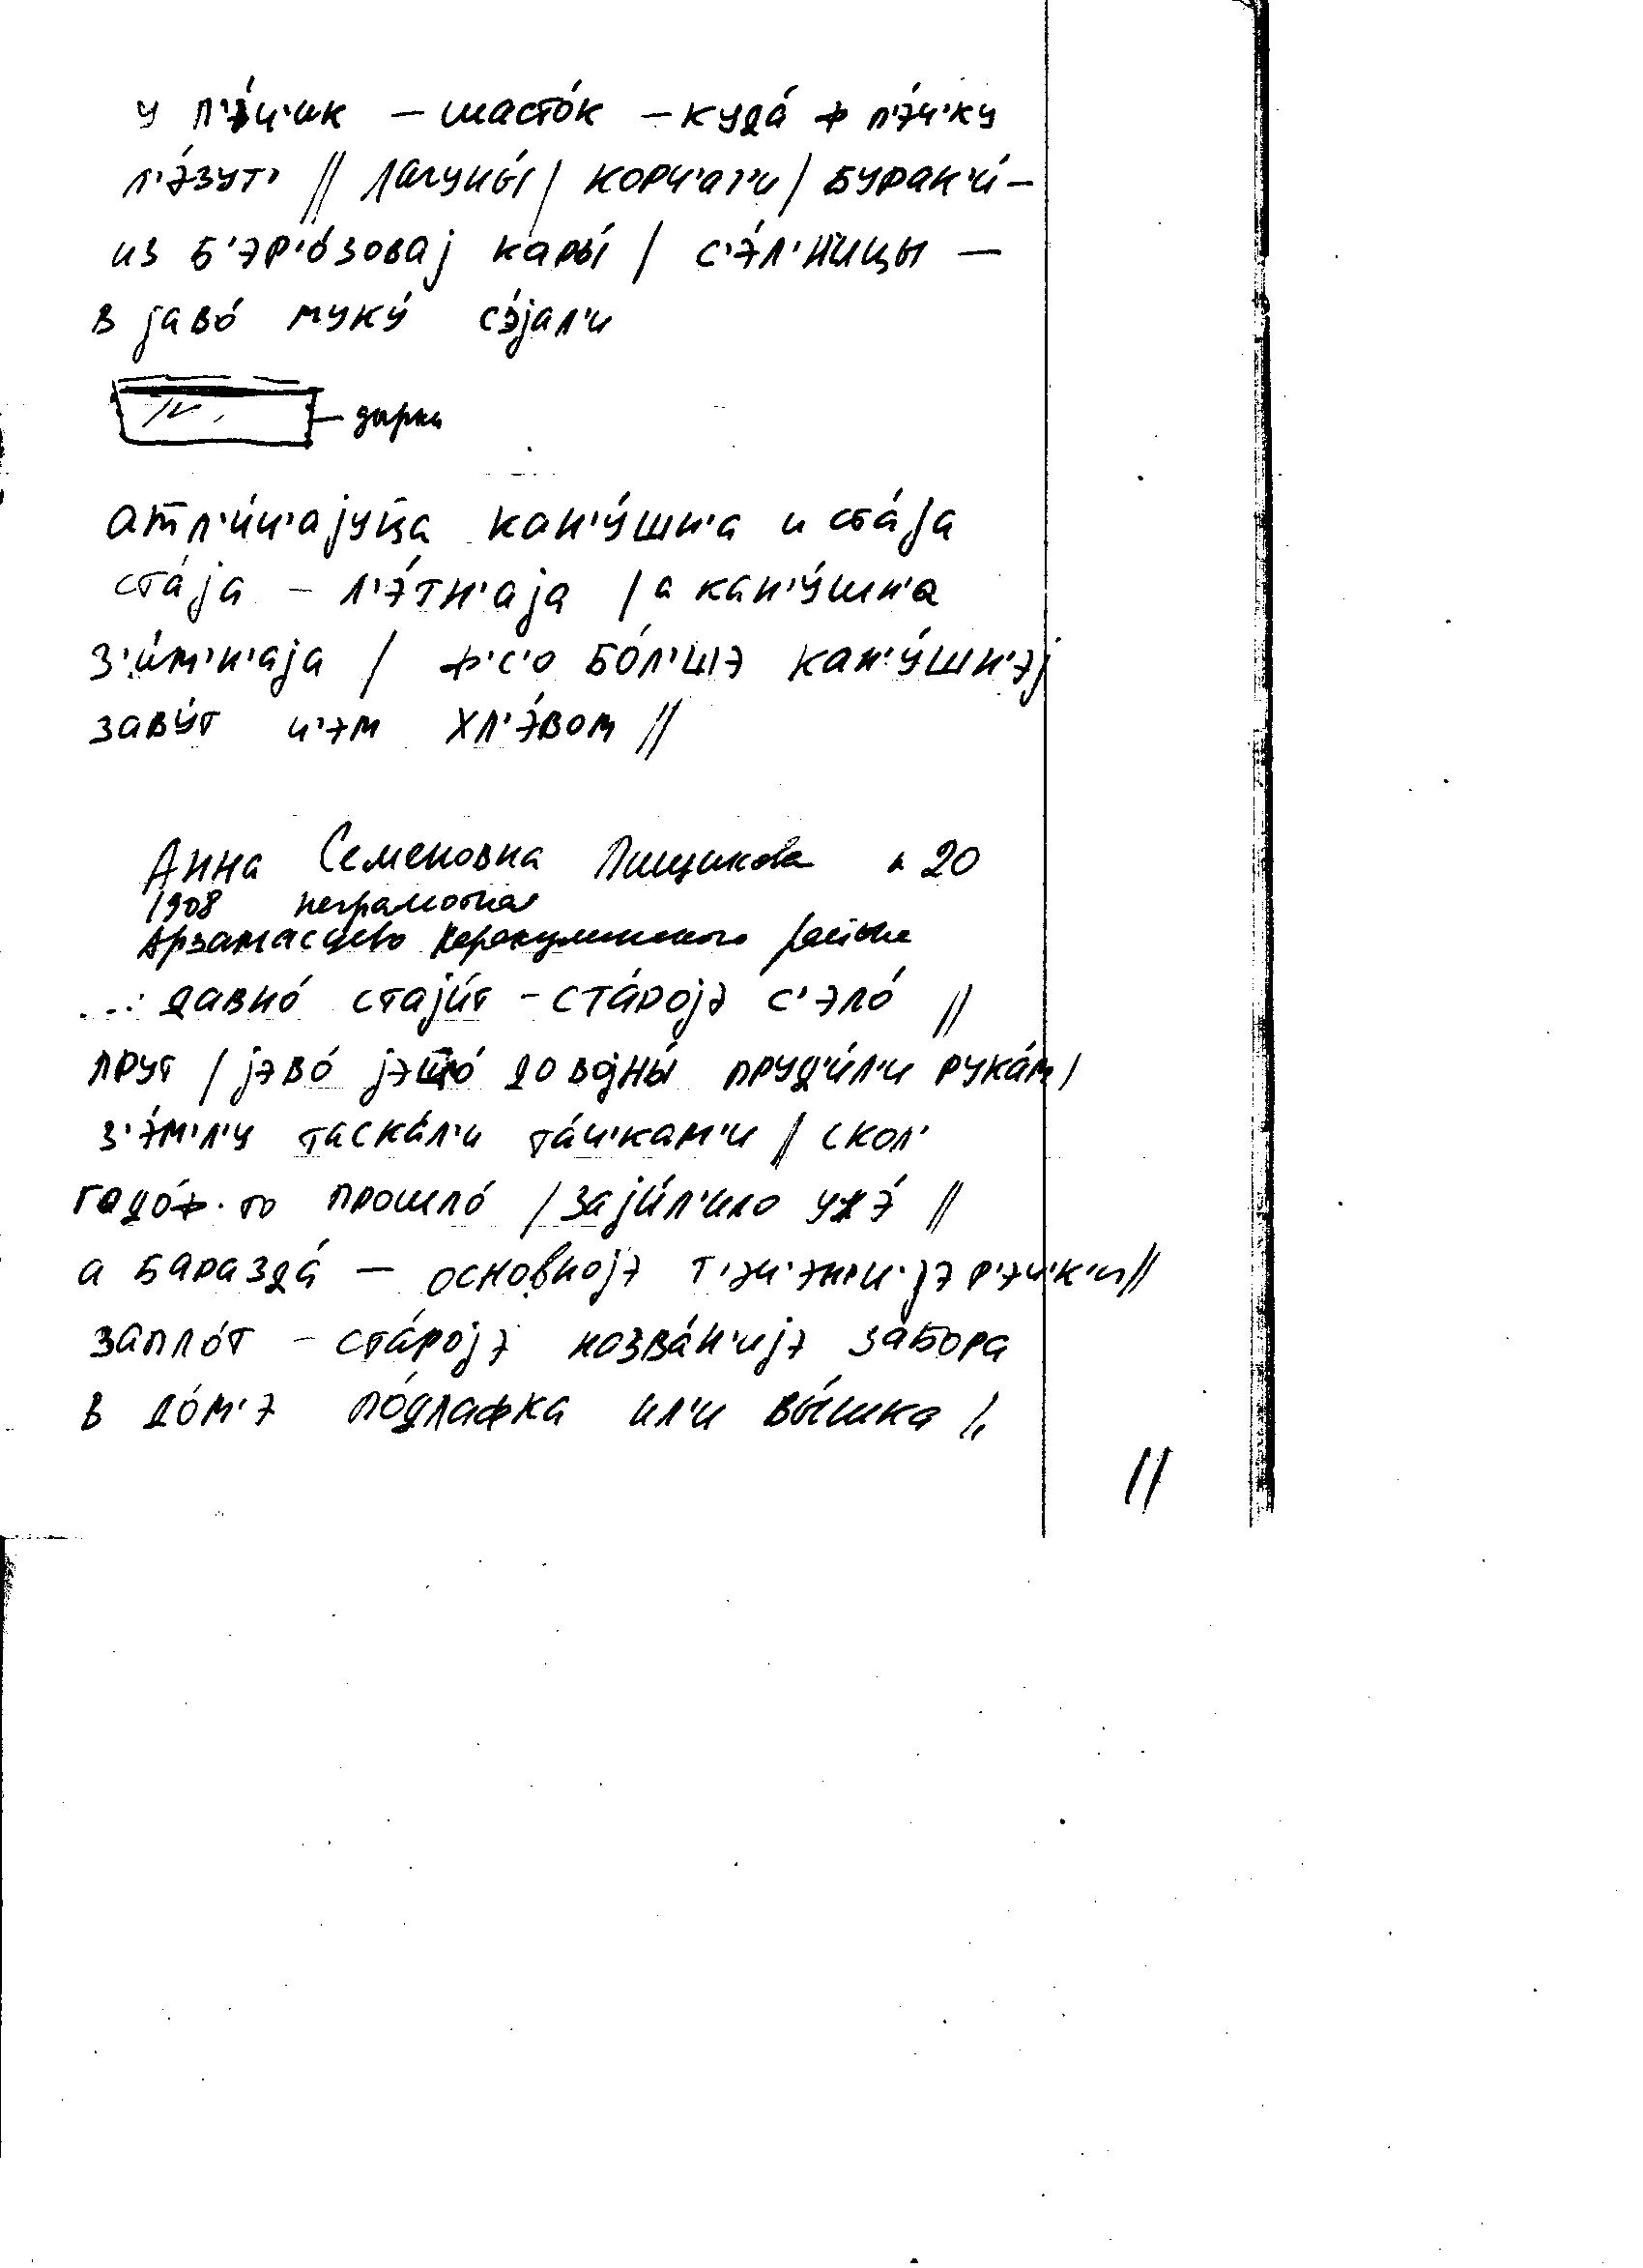 у п'э́ч'ик – шасто́к – куда́ ф п'э́ч'ку
л'э́зут' // Лагуны́ / корч'аг'и / бурак'и́ –
из б'эр'о́завај кары́ / с'э́л'ницы –
в јаво́ муку́ с'э́јал'и
– дырка
атл'ич'ајуца кан'у́шн'а и ста́ја
ста́ја – л'э́тн'аја / а кан'у́шн'а
з'и́м'н'аја / ф'с'о бо́л'шэ кан'у́шн'эј
заву́т ч'эм хл'э́вом //
Анна Семеновна Пищикова к 20
1908 неграмотная
Арзамасцево Каракулинского района
...: давно́ стаји́т – ста́ројэ с'эло́ //
прут / јэво́ јэшо́ до војны́ пруд'и́л'и рука́м /
з'э́м'л'у таска́л'и та́ч'кам'и // скол'
гадо́ф-то прошло́ / заји́л'ило ужэ́ //
а баразда́ – основнојэ т'эч'эн'ијэ р'эч'к'и //
запло́т – ста́ројэ назва́н'ијэ забора
в до́м'э по́длафка ил'и вы́шка //
11